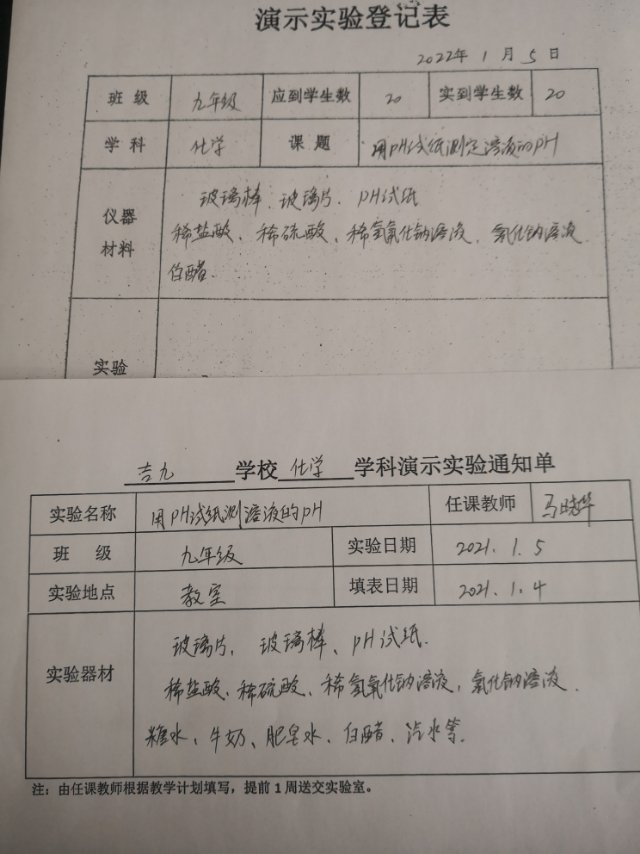 演示实验登记表
2022年 1 月 5 日
班 级 九年级 应到学生数 20 实到学生数 20
学 科 化学 课 题 用PH试纸测定溶液的PH
仪器
材料
玻璃棒、玻璃片、PH试纸
稀盐酸、稀硫酸、稀氢氧化钠溶液、氯化钠溶液
白醋.
实验
吉九 学校 化学 学科演示实验通知单
实验名称 用PH试纸测溶液的PH 任课教师 马晓华
班 级 九年级 实验日期 2021.1.5
实验地点 教室 填表日期 2021.1.4
实验器材
玻璃片、玻璃棒、PH试纸.
稀盐酸、稀硫酸、稀氢氧化钠溶液、氯化钠溶液.
糖水、牛奶、肥皂水、白醋、汽水等.
注：由任课教师根据教学计划填写，提前1周送交实验室。